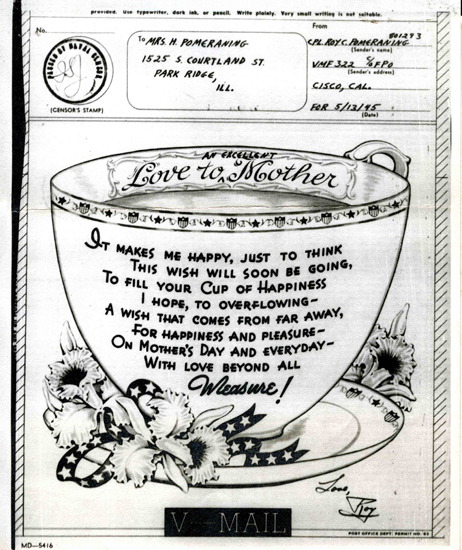 provided. Use typewriter, dark ink, or pencil. Write plainly. Very small writing is not suitable.
No.
PASSED BY NAVAL CENSOR
(CENSOR'S STAMP)
To MRS. H. POMERANING
1525 S. COURTLAND ST.
PARK RIDGE,
ILL.
From
801293
CPL. ROY C. POMERANING
(Sender's name)
VMF 322 c/o FPO
(Sender's address)
CISCO, CAL.
FOR 5/13/45
(Date)
AN EXCELLENT
Love to Mother
It makes me happy, just to think
This wish will soon be going,
To fill your Cup of Happiness
I hope, to overflowing—
A wish that comes from far away,
For happiness and pleasure—
On Mother's Day and everyday—
With love beyond all
Mleasure!
Love,
Roy
V - MAIL
POST OFFICE DEPT. PERMIT NO. 63
MD-5416